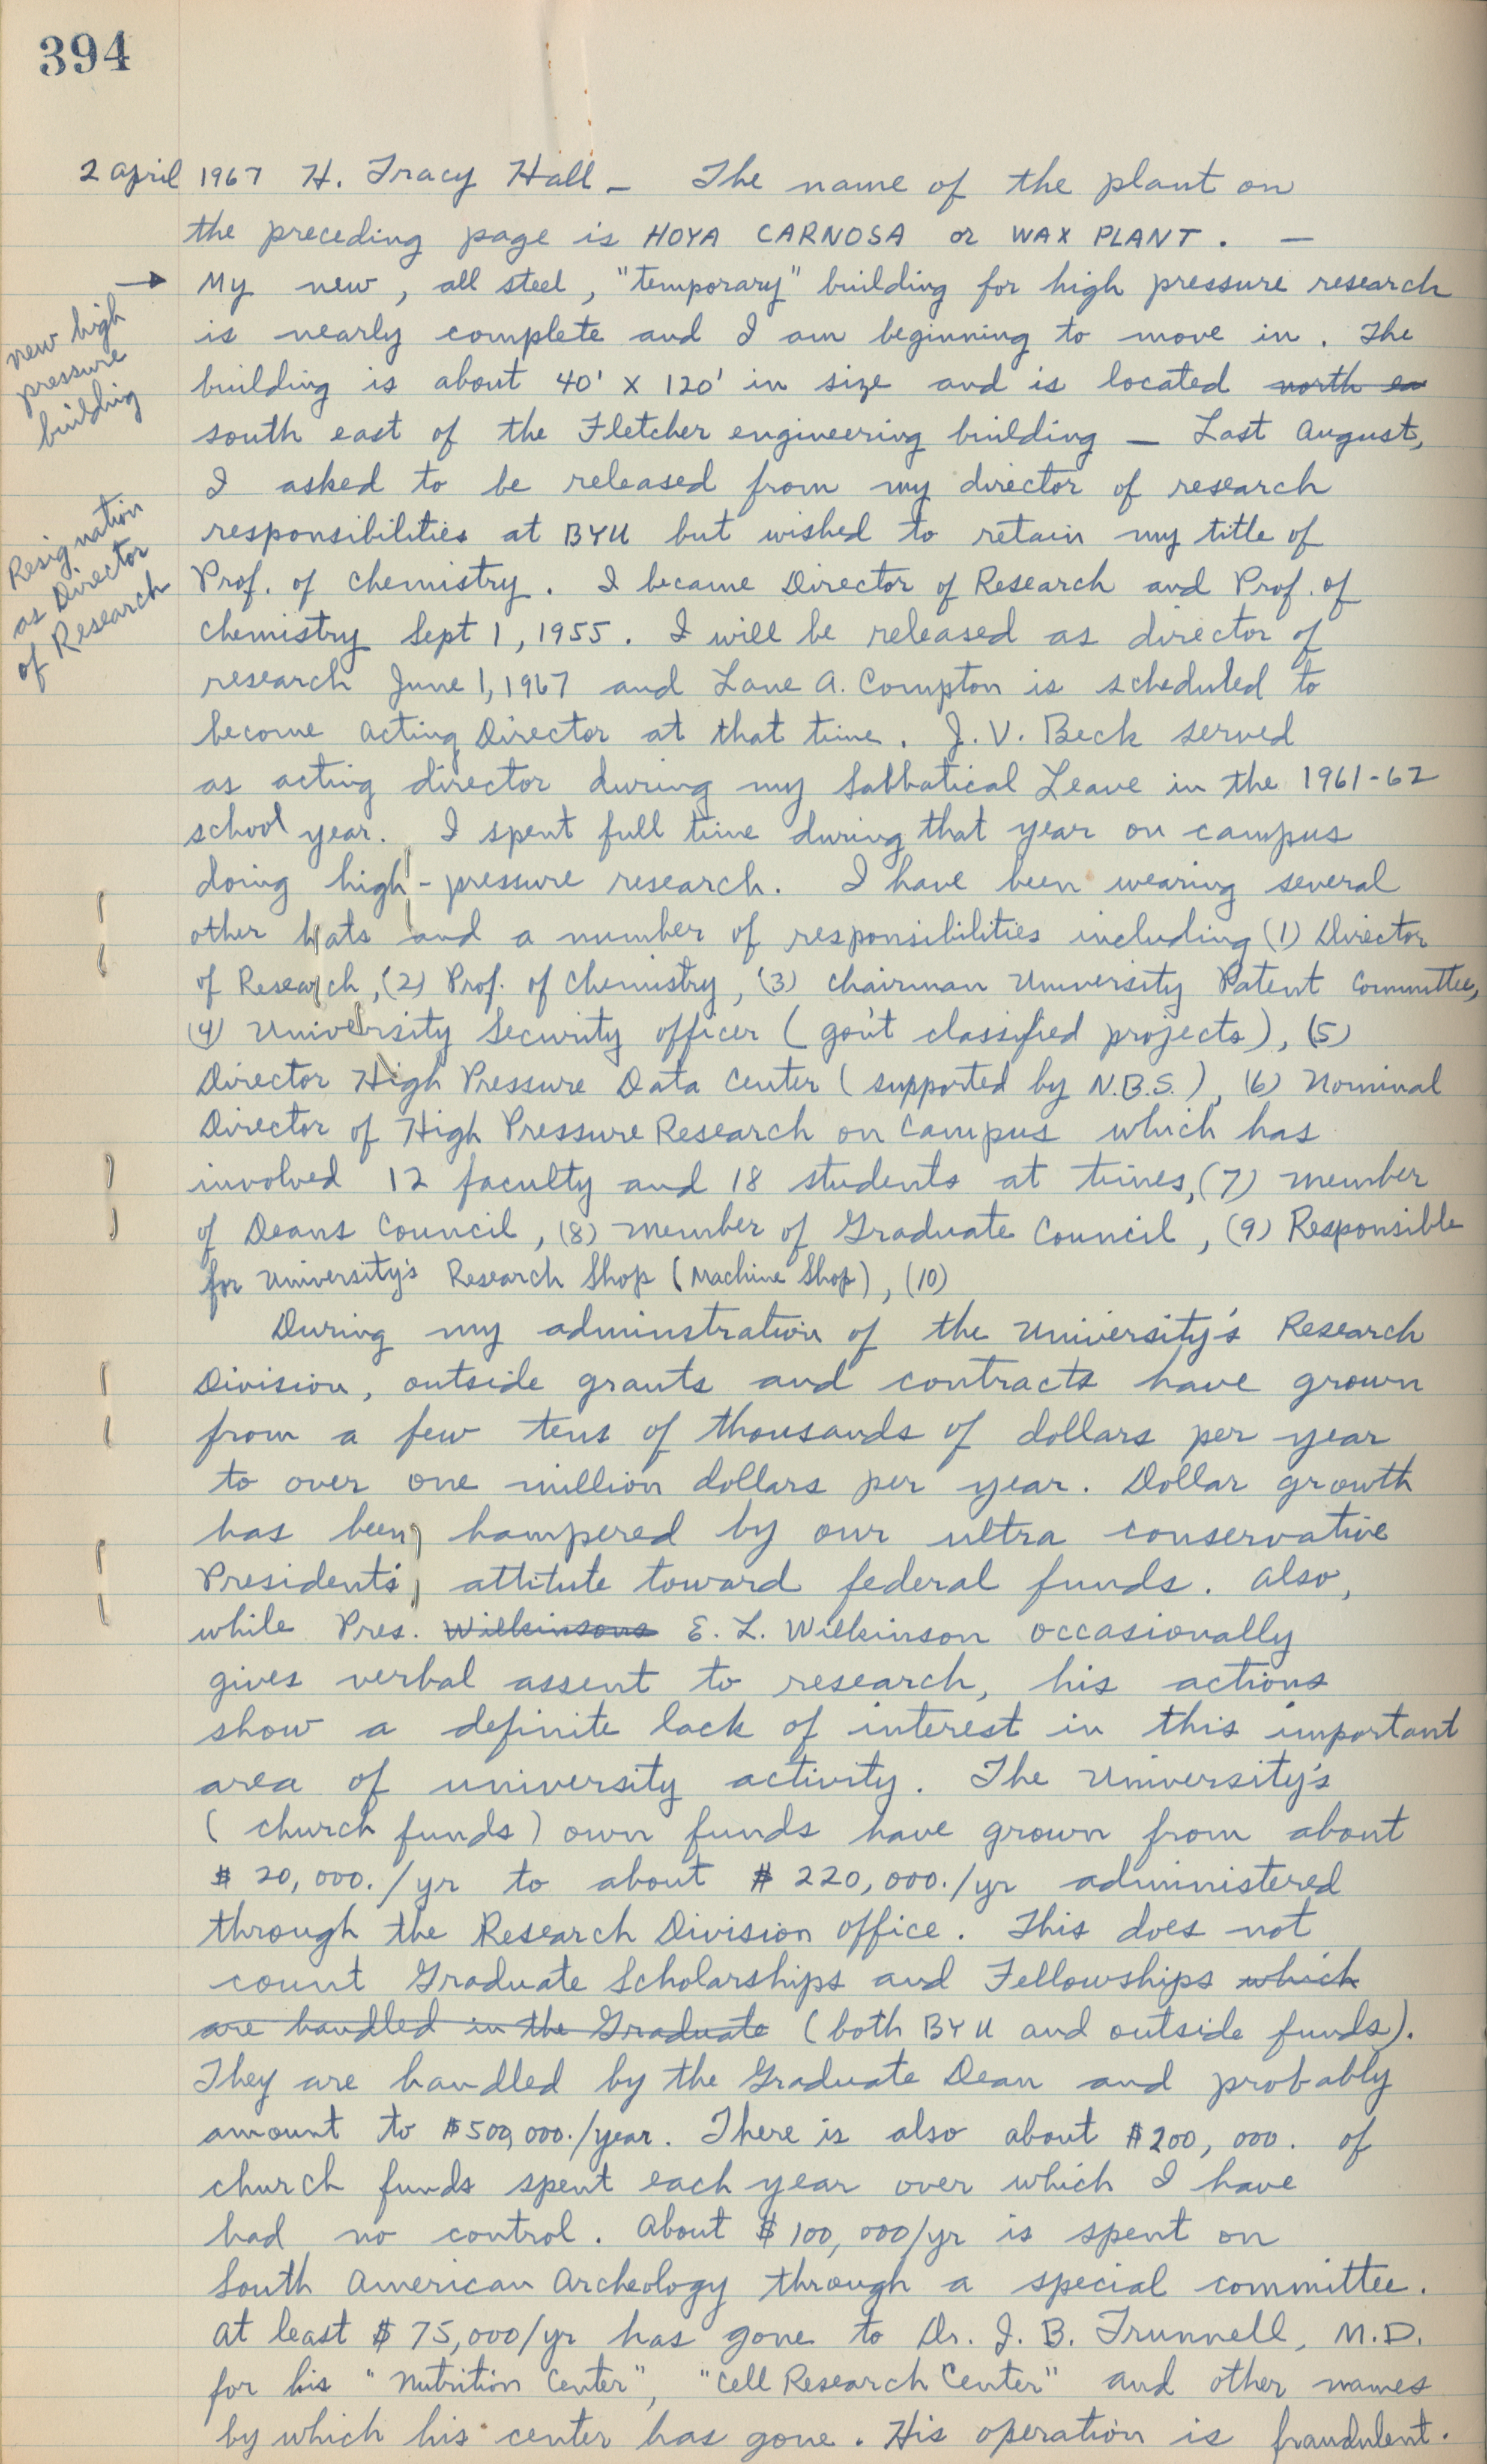 394
2 April 1967 H. Tracy Hall - The name of the plant on
the preceding page is HOYA CARNOSA or WAX PLANT. -
→ My new, all steel, "temporary" building for high pressure research
new high
pressure
building
is nearly complete and I am beginning to move in. The
building is about 40' x 120' in size and is located north ea
south east of the Fletcher engineering building - Last August,
I asked to be released from my director of research
Resignation
as Director
of Research
responsibilities at BYU but wished to retain my title of
Prof. of Chemistry. I became Director of Research and Prof. of
Chemistry Sept 1, 1955. I will be released as director of
research June 1, 1967 and Lane A. Compton is scheduled to
become Acting Director at that time. J. V. Beck served
as acting director during my Sabbatical Leave in the 1961-62
school year. I spent full time during that year on campus
doing high-pressure research. I have been wearing several
other hats and a number of responsibilities including (1) Director
of Research, (2) Prof. of Chemistry, (3) Chairman University Patent Committee,
(4) University Security officer (gov't classified projects), (5)
Director High Pressure Data Center (supported by N.B.S.), (6) Nominal
Director of High Pressure Research on Campus which has
involved 12 faculty and 18 students at times, (7) Member
of Deans Council, (8) Member of Graduate Council, (9) Responsible
for University's Research Shop (Machine Shop), (10)
During my adminstration of the University's Research
Division, outside grants and contracts have grown
from a few tens of thousands of dollars per year
to over one million dollars per year. Dollar growth
has been hampered by our ultra conservative
President's attitute toward federal funds. Also,
while Pres. Wilkinsons E. L. Wilkinson occasionally
gives verbal assent to research, his actions
show a definite lack of interest in this important
area of university activity. The University's
(church funds) own funds have grown from about
$20,000./yr to about $220,000./yr administered
through the Research Division office. This does not
count Graduate Scholarships and Fellowships which
are handled in the Graduate (both BYU and outside funds).
They are handled by the Graduate Dean and probably
amount to $500,000./year. There is also about $200,000. of
church funds spent each year over which I have
had no control. About $100,000/yr is spent on
South American Archeology through a special committee.
At least $75,000/yr has gone to Dr. J. B. Trunnell, M.D.
for his "Nutrition Center", "Cell Research Center" and other names
by which his center has gone. His operation is fraudulent.